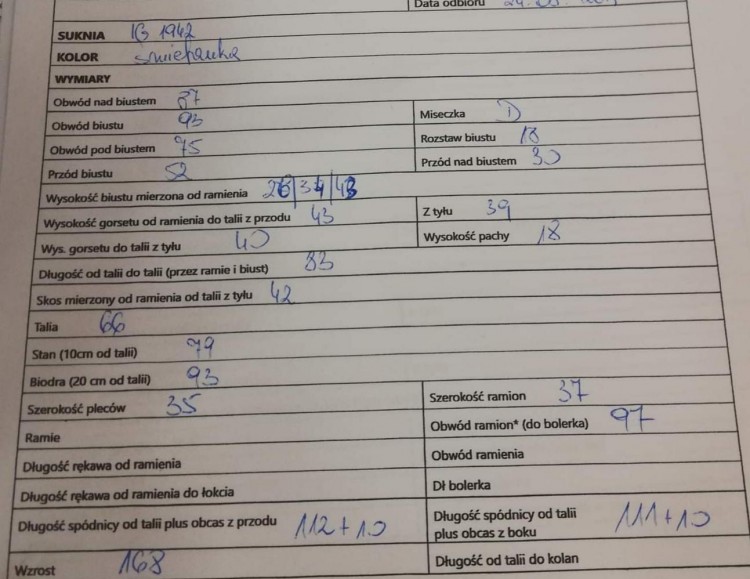 Data odbioru
SUKNIA IG 1942
KOLOR śmietanka
WYMIARY
Obwód nad biustem 87
Obwód biustu 93 Miseczka D
Obwód pod biustem 75 Rozstaw biustu 18
Przód biustu 52 Przód nad biustem 30
Wysokość biustu mierzona od ramienia 26/34/43
Wysokość gorsetu od ramienia do talii z przodu 43 Z tyłu 39
Wys. gorsetu do talii z tyłu 40 Wysokość pachy 18
Długość od talii do talii (przez ramie i biust) 83
Skos mierzony od ramienia od talii z tyłu 42
Talia 66
Stan (10cm od talii) 79
Biodra (20 cm od talii) 93
Szerokość pleców 35 Szerokość ramion 37
Ramie Obwód ramion* (do bolerka) 97
Długość rękawa od ramienia Obwód ramienia
Długość rękawa od ramienia do łokcia Dł bolerka
Długość spódnicy od talii plus obcas z przodu 112+10 Długość spódnicy od talii
plus obcas z boku 111+10
Wzrost 168 Długość od talii do kolan